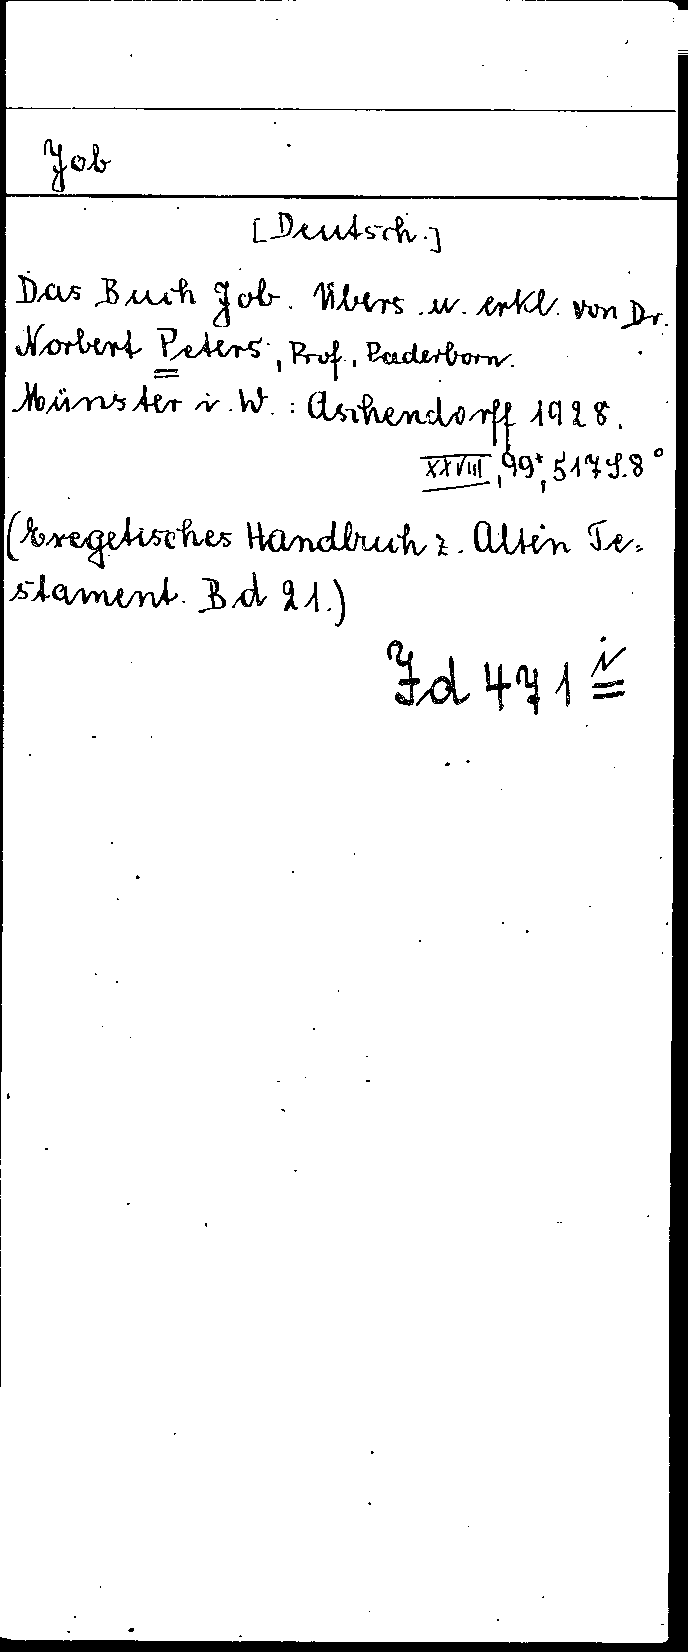 Job
[Deutsch.]
Das Buch Job. Übers. u. erkl. von Dr.
Norbert Peters, Prof., Paderborn.
Münster i. W.: Aschendorff 1928.
XXVIII, 99*, 517 S. 8°
(Exegetisches Handbuch z. Alten Te=
stament. Bd 21.)
Jd 471 i